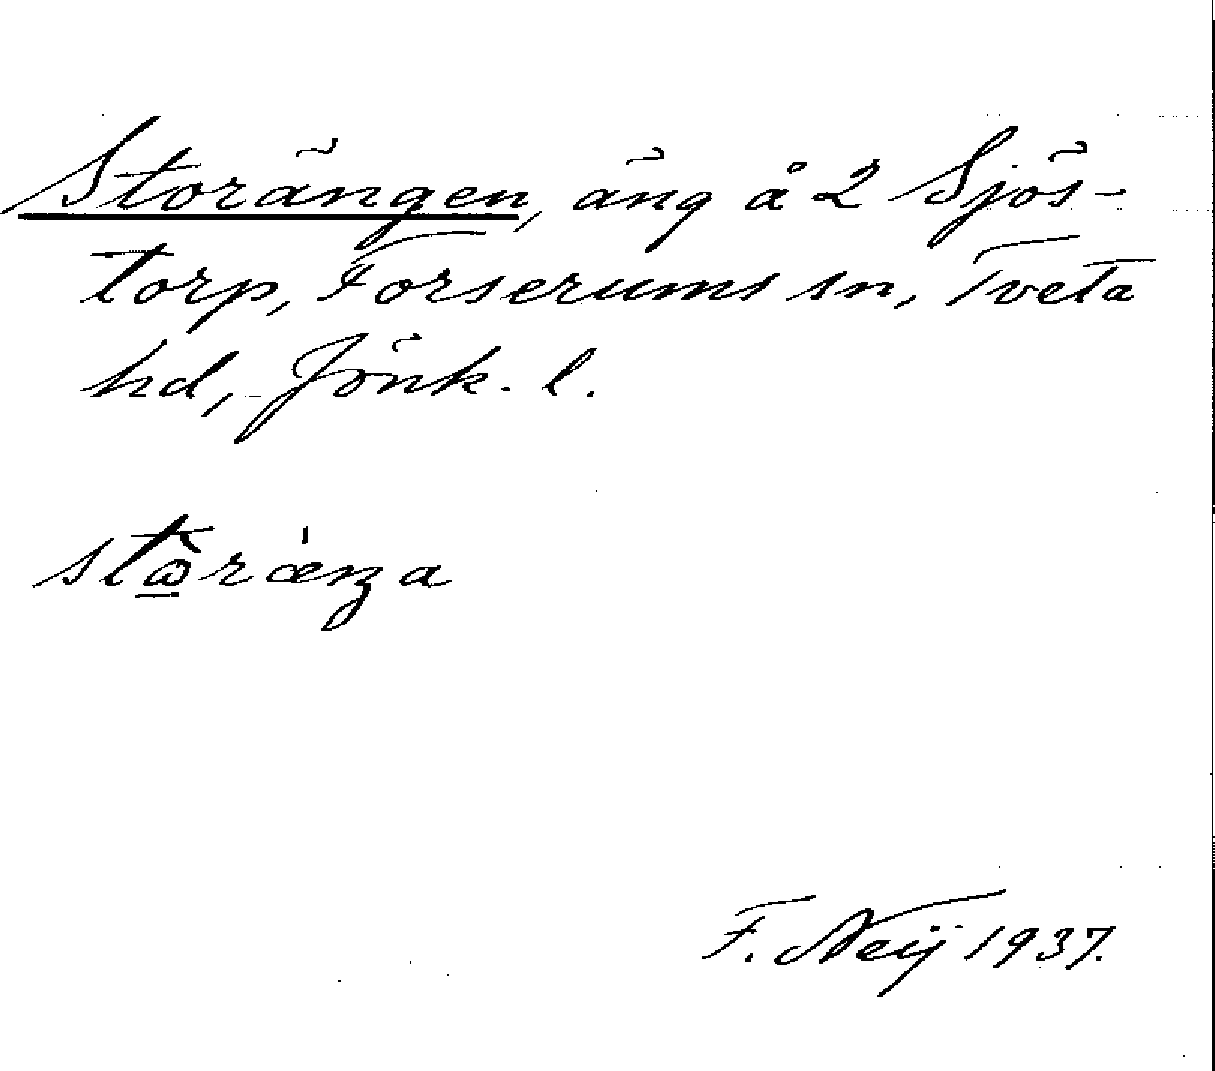 Storängen, äng å 2 Sjös-
torp, Forserums sn, Tveta
hd, Jönk. l.
stὼ̲rǽŋa
F. Neij 1937.